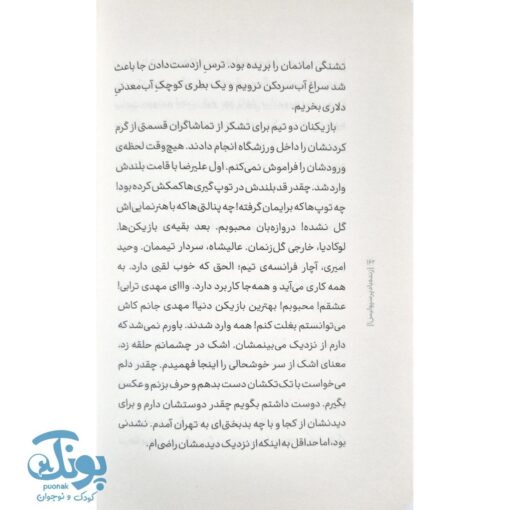 تشنگی امانمان را بریده بود. ترسِ ازدست‌دادن جا باعث
شد سراغ آب‌سردکن نرویم و یک بطری کوچکِ آب‌معدنیِ
دلاری بخریم.
بازیکنان دو تیم برای تشکر از تماشاگران قسمتی از گرم
کردنشان را داخل ورزشگاه انجام دادند. هیچ‌وقت لحظه‌ی
ورودشان را فراموش نمی‌کنم. اول علیرضا با قامت بلندش
وارد شد. چقدر قد بلندش در توپ‌گیری‌ها کمکش کرده بود!
چه توپ‌ها که برایمان گرفته! چه پنالتی‌ها که با هنرنمایی‌اش
گل نشده! دروازه‌بان محبوبم. بعد بقیه‌ی بازیکن‌ها.
لوکادیا، خارجی گل‌زنمان. عالیشاه، سردار تیممان. وحید
امیری، آچار فرانسه‌ی تیم؛ الحق که خوب لقبی دارد. به
همه کاری می‌آید و همه‌جا کاربرد دارد. وااای مهدی ترابی!
عشقم! محبوبم! بهترین بازیکن دنیا! مهدی جانم کاش
می‌توانستم بغلت کنم! همه وارد شدند. باورم نمی‌شد که
دارم از نزدیک می‌بینمشان. اشک در چشمانم حلقه زد.
معنای اشک از سر خوشحالی را اینجا فهمیدم. چقدر دلم
می‌خواست با تک‌تکشان دست بدهم و حرف بزنم و عکس
بگیرم. دوست داشتم بگویم چقدر دوستشان دارم و برای
دیدنشان از کجا و با چه بدبختی‌ای به تهران آمدم. نشدنی
بود، اما حداقل به اینکه از نزدیک دیدمشان راضی‌ام.
زنده‌باد پرسپولیس!
پونک
puonak
کودک و نوجوان